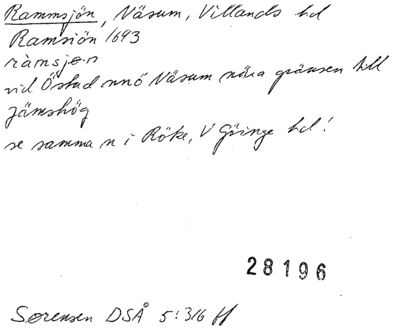 Rammsjön, Näsum, Villands hd
Ramsiön 1693
ramsjøn
vid Östad nnö Näsum nära gränsen till
Jämshög
se samma n i Röke, V Göinge hd!
28196
Sørensen DSÅ 5:316 ff